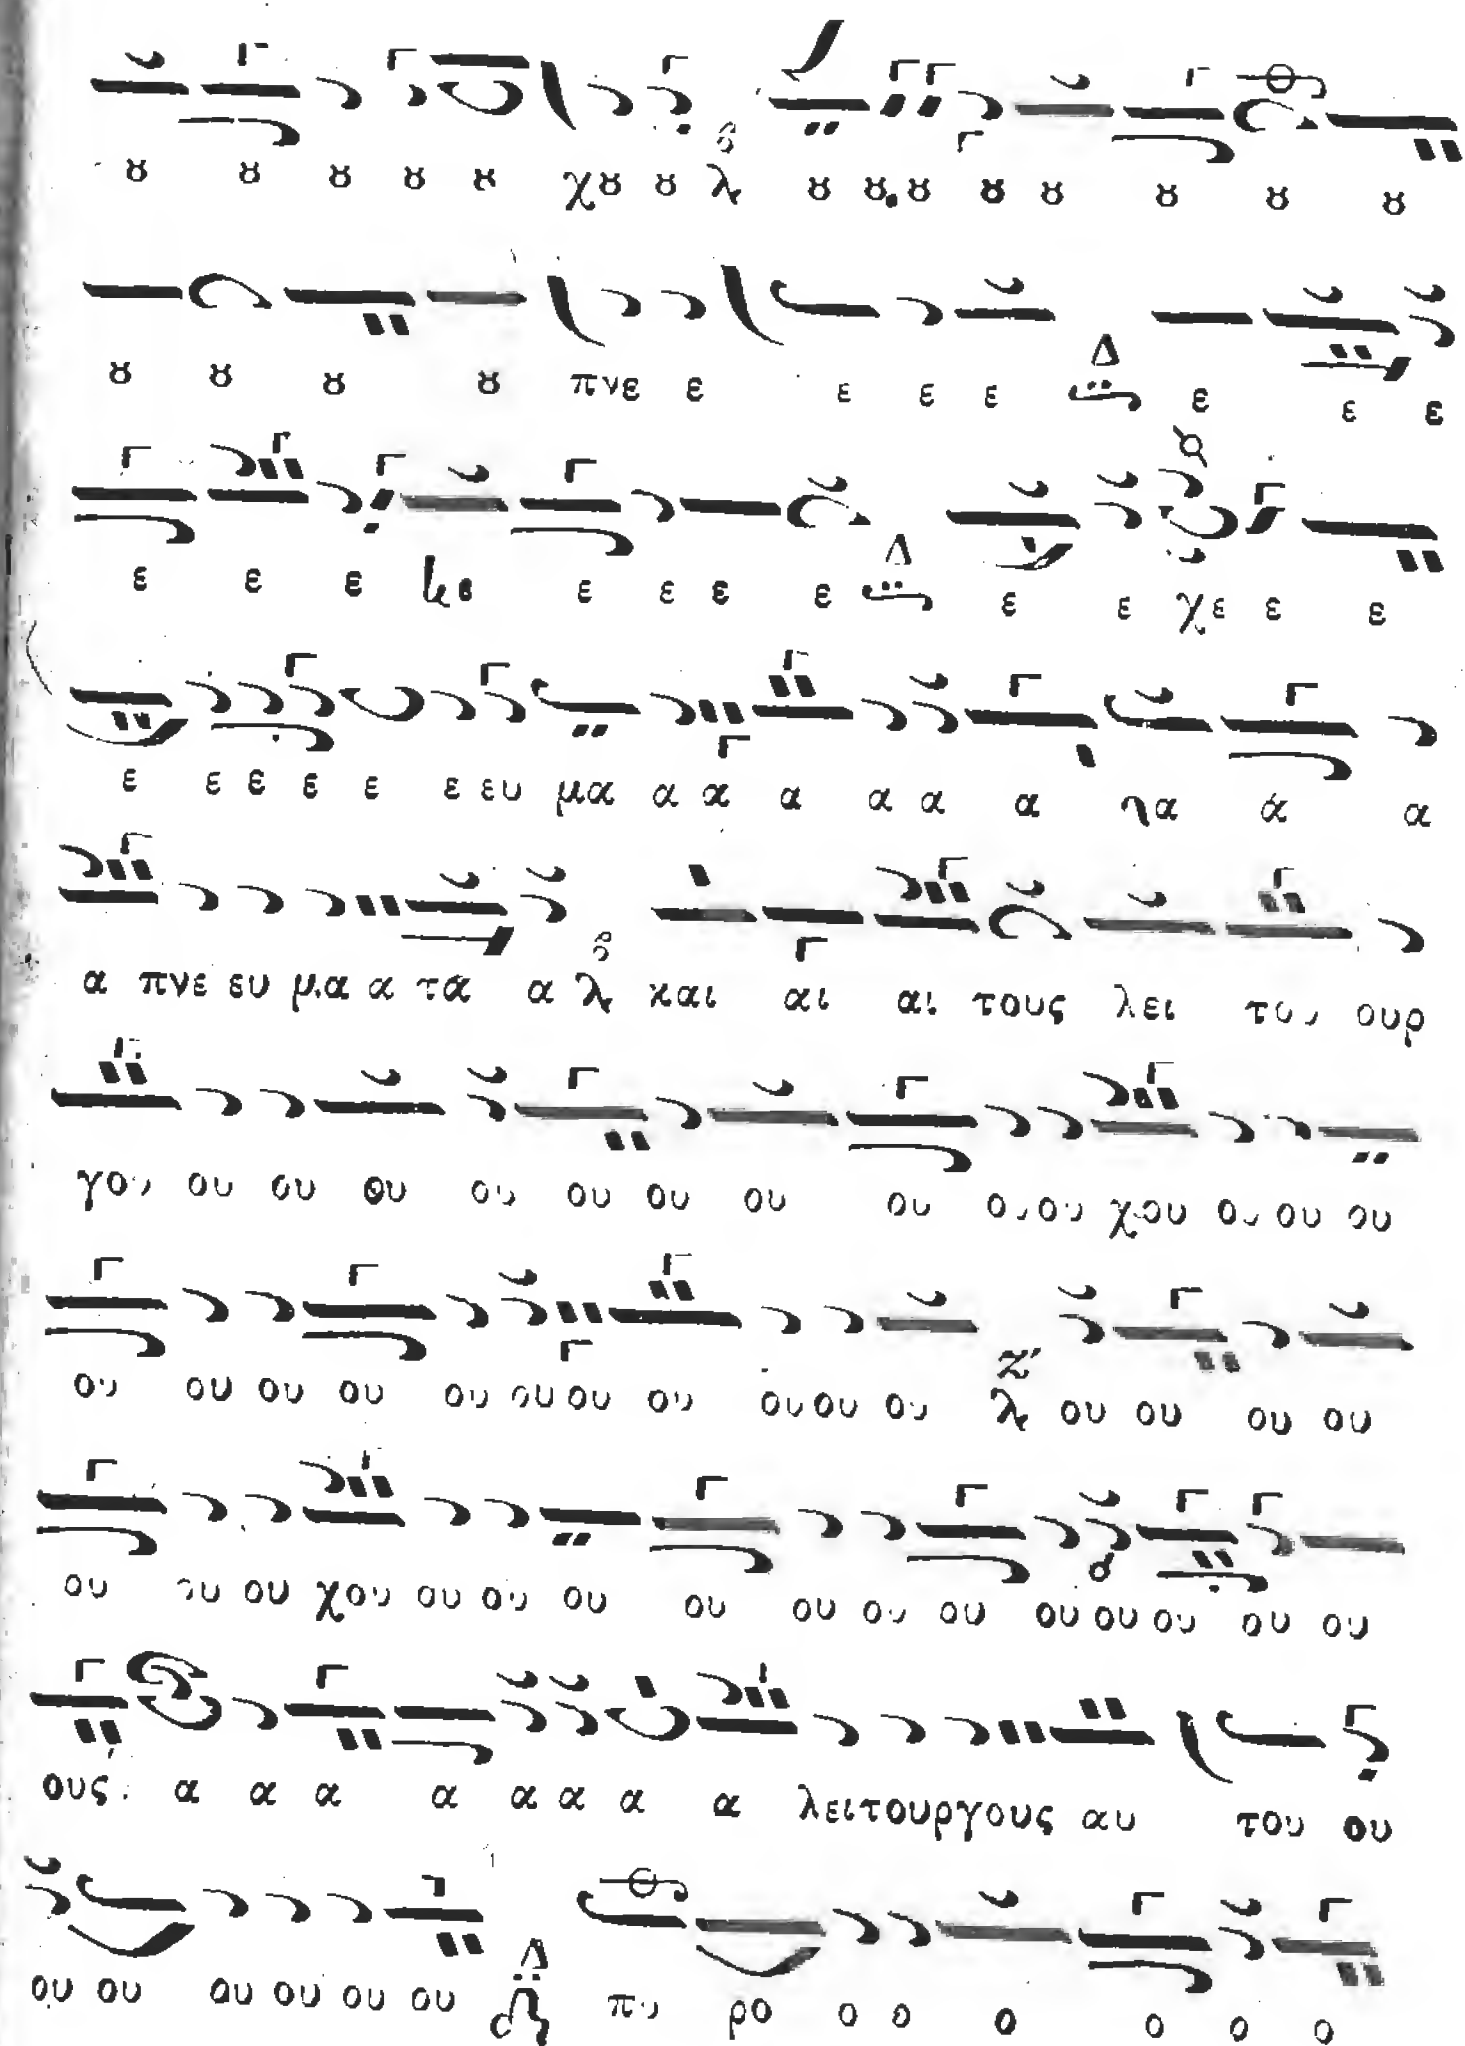 ȣ ȣ ȣ ȣ ȣ χȣ ȣ λ ȣ ȣ ȣ ȣ ȣ ȣ ȣ ȣ
ȣ ȣ ȣ ȣ πνε ε ε ε ε Δ ε ε ε
ε ε ε ε ε ε ε Δ ε ε χε ε ε
ε ε ε ε ε ε ευ μα α α α α α α α α
α πνε ευ μα α τα α λ και αι αι τους λει του ουρ
γου ου ου ου ου ου ου ου ου ου ου χου ου ου ου
ου ου ου ου ου ου ου ου ου ου ου Ζ′ λ ου ου ου ου
ου ου ου χου ου ου ου ου ου ου ου ου ου ου ου ου
ους α α α α α α α α λειτουργους αυ του ου
ου ου ου ου ου ου Δ πυ ρο ο ο ο ο ο ο